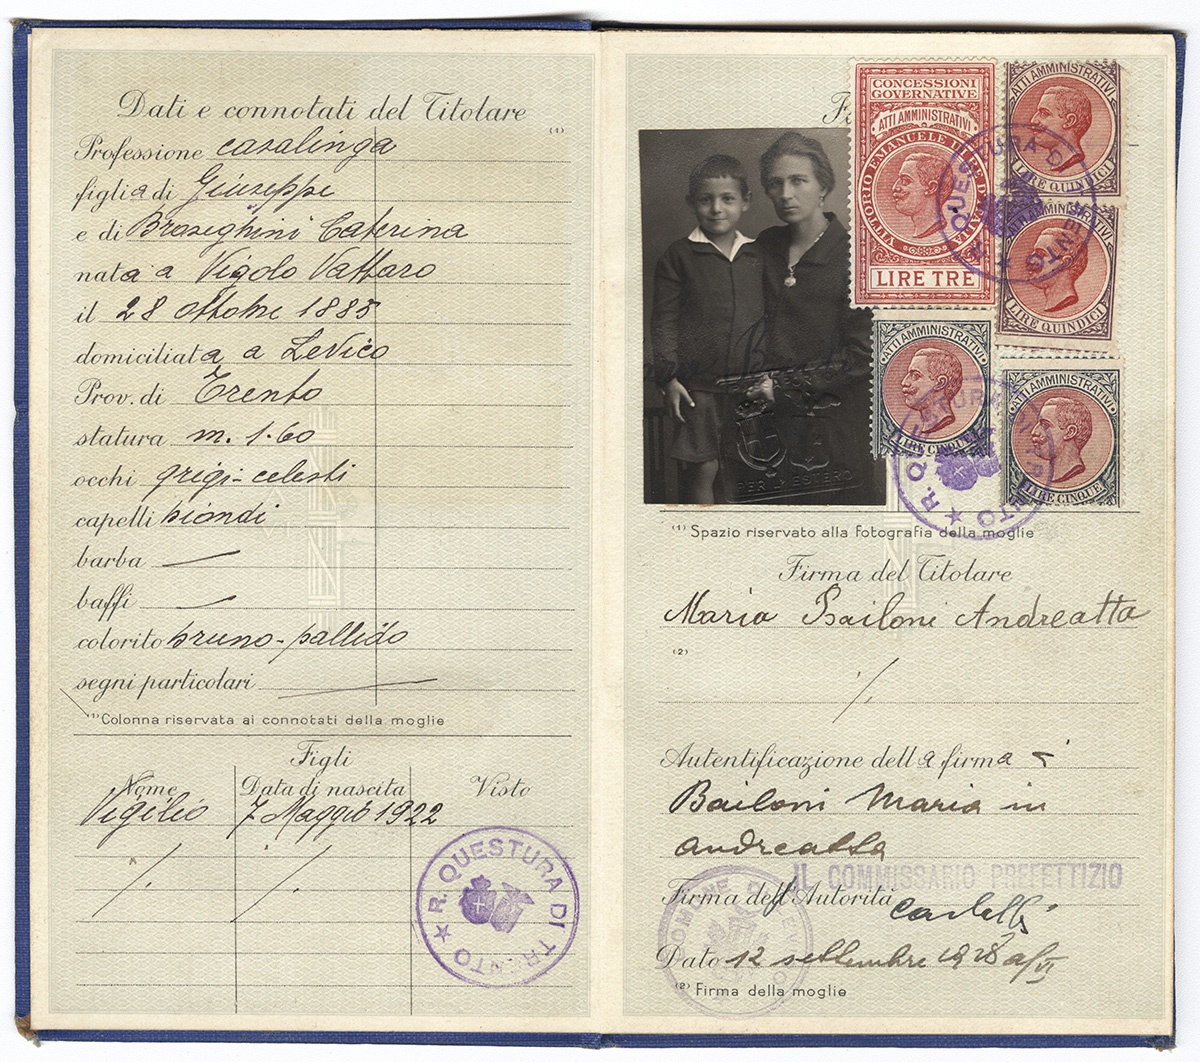 Dati e connotati del Titolare
(1)
Professione casalinga
figlia di Giuseppe
e di Braseghini Caterina
nata a Vigolo Vattaro
il 28 ottobre 1885
domiciliata a Levico
Prov. di Trento
statura m. 1.60
occhi grigi-celesti
capelli biondi
barba —
baffi —
colorito bruno-pallido
segni particolari —
(1) Colonna riservata ai connotati della moglie
Figli
Nome Data di nascita Visto
Vigilio 7 Maggio 1922
R. QUESTURA DI TRENTO
CONCESSIONI
GOVERNATIVE
ATTI AMMINISTRATIVI
VITTORIO EMANUELE III RE D'ITALIA
LIRE TRE
ATTI AMMINISTRATIVI
LIRE QUINDICI
ATTI AMMINISTRATIVI
LIRE QUINDICI
R. QUESTURA DI TRENTO
ATTI AMMINISTRATIVI
LIRE CINQUE
ATTI AMMINISTRATIVI
LIRE CINQUE
R. QUESTURA DI TRENTO
PER L'ESTERO
(1) Spazio riservato alla Fotografia della moglie
Firma del Titolare
Maria Bailoni Andreatta
(2)
Autentificazione della firma
Bailoni Maria in
Andreatta
IL COMMISSARIO PREFETTIZIO
Firma dell'Autorità
COMUNE DI LEVICO
Dato 12 settembre 1928 a/VI
(2) Firma della moglie